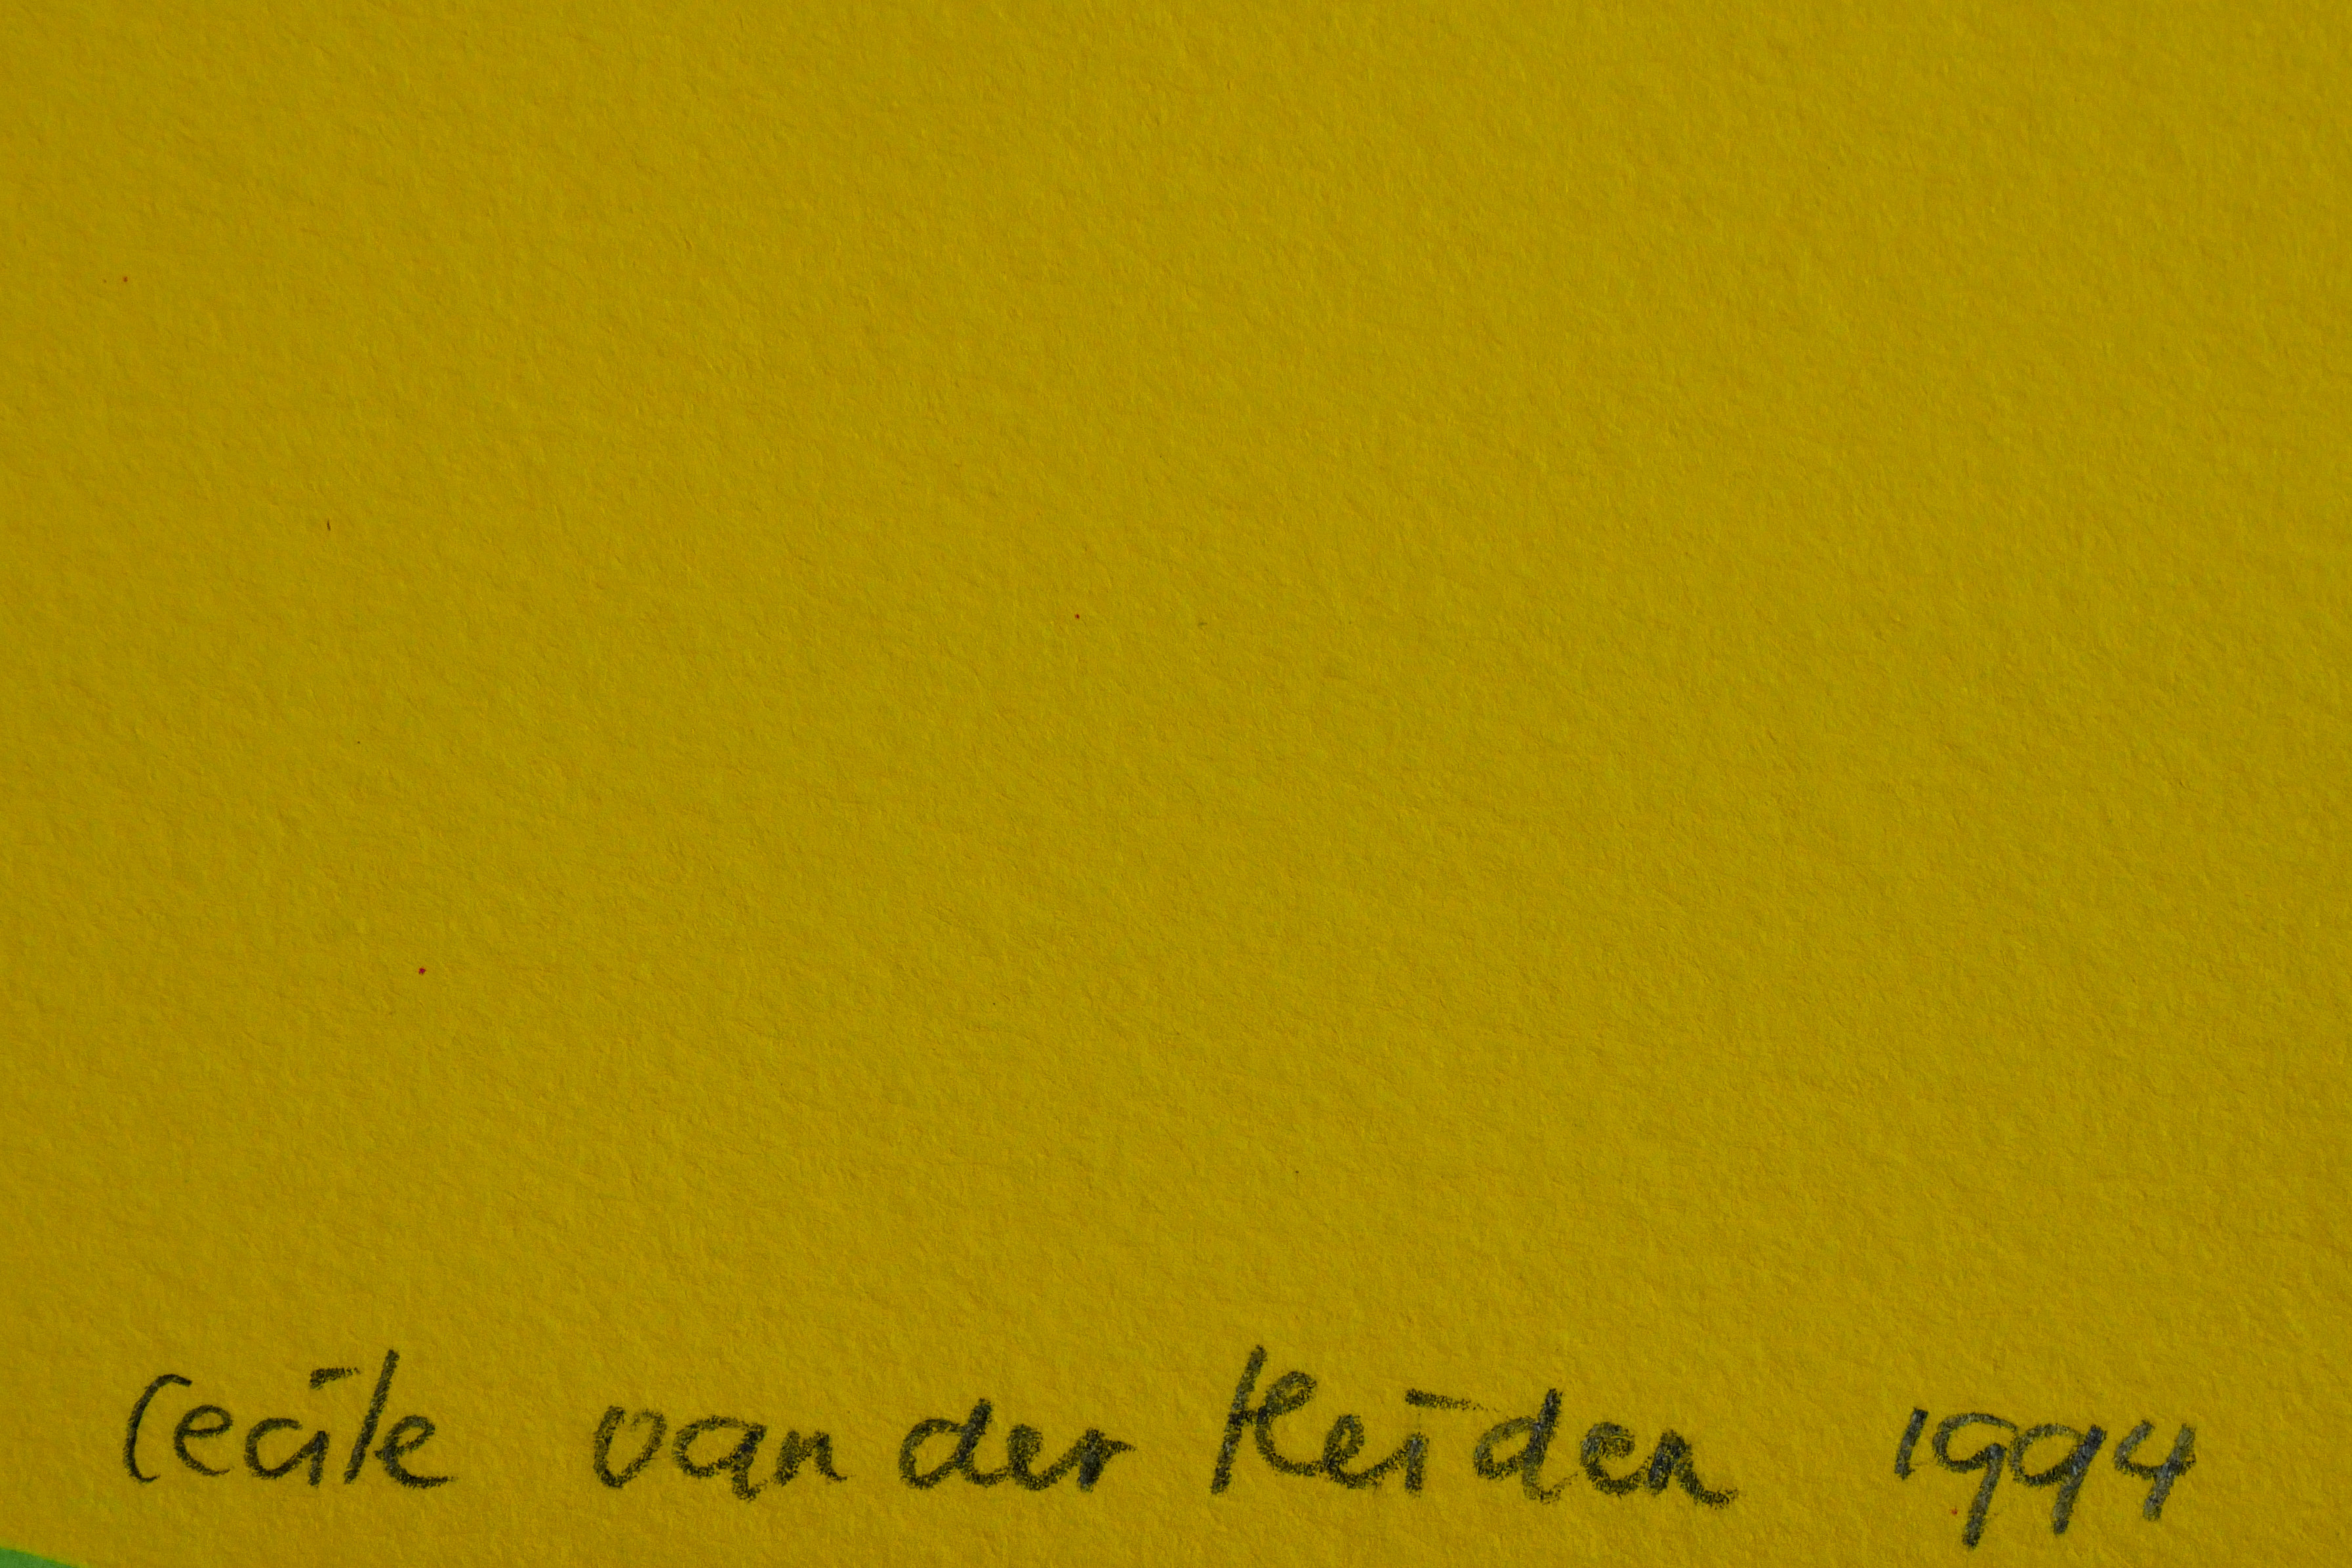 Cecile van der Heiden 1994